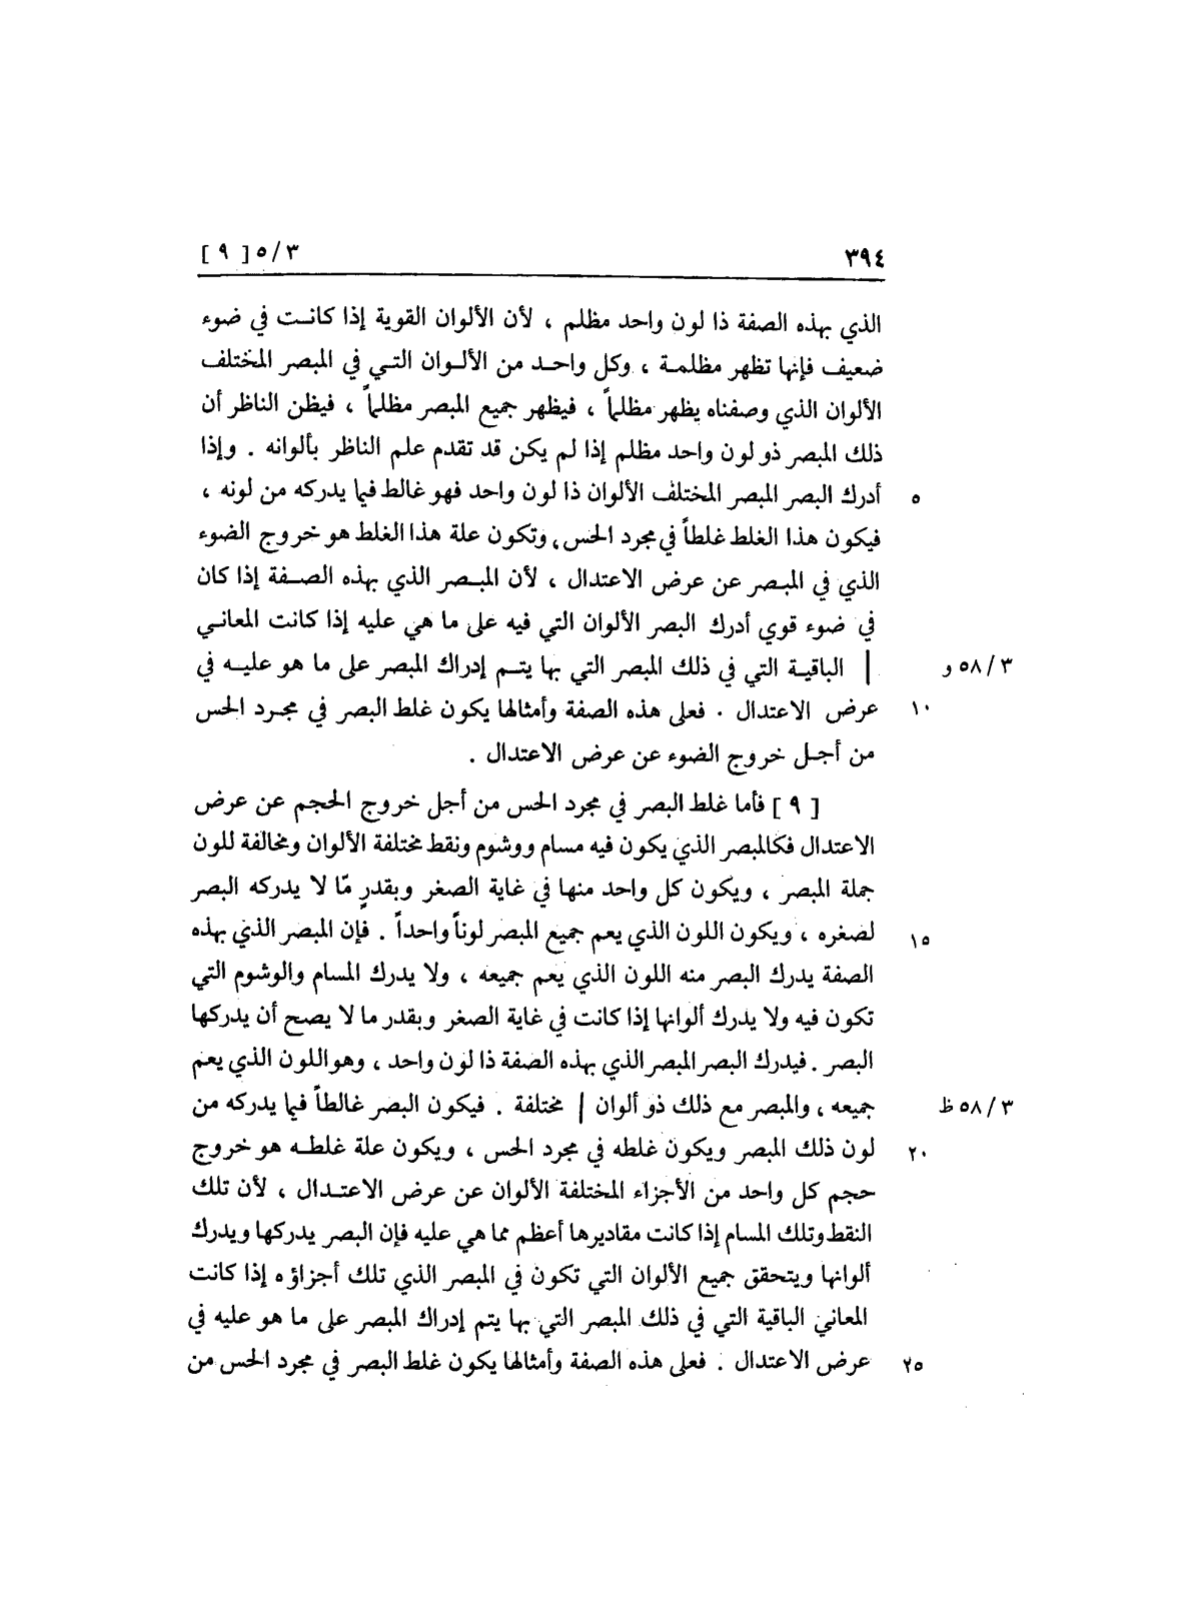 ٣٩٤ ٣/٥ [ ٩ ]
الذي بهذه الصفة ذا لون واحد مظلم ، لأن الألوان القوية إذا كانت في ضوء
ضعيف فإنها تظهر مظلمة ، وكل واحد من الألوان التي في المبصر المختلف
الألوان الذي وصفناه يظهر مظلماً ، فيظهر جميع المبصر مظلماً ، فيظن الناظر أن
ذلك المبصر ذو لون واحد مظلم إذا لم يكن قد تقدم علم الناظر بألوانه . وإذا
٥ أدرك البصر المبصر المختلف الألوان ذا لون واحد فهو غالط فيما يدركه من لونه ،
فيكون هذا الغلط غلطاً في مجرد الحس، وتكون علة هذا الغلط هو خروج الضوء
الذي في المبصر عن عرض الاعتدال ، لأن المبصر الذي بهذه الصفة إذا كان
في ضوء قوي أدرك البصر الألوان التي فيه على ما هي عليه إذا كانت المعاني
٣/٥٨ و | الباقية التي في ذلك المبصر التي بها يتم إدراك المبصر على ما هو عليه في
١٠ عرض الاعتدال . فعلى هذه الصفة وأمثالها يكون غلط البصر في مجرد الحس
من أجل خروج الضوء عن عرض الاعتدال .
[ ٩ ] فأما غلط البصر في مجرد الحس من أجل خروج الحجم عن عرض
الاعتدال فكالمبصر الذي يكون فيه مسام ووشوم ونقط مختلفة الألوان ومخالفة للون
جملة المبصر ، ويكون كل واحد منها في غاية الصغر وبقدرٍ مّا لا يدركه البصر
١٥ لصغره ، ويكون اللون الذي يعم جميع المبصر لوناً واحداً . فإن المبصر الذي بهذه
الصفة يدرك البصر منه اللون الذي يعم جميعه ، ولا يدرك المسام والوشوم التي
تكون فيه ولا يدرك ألوانها إذا كانت في غاية الصغر وبقدر ما لا يصح أن يدركها
البصر . فيدرك البصر المبصر الذي بهذه الصفة ذا لون واحد ، وهو اللون الذي يعم
٣/٥٨ ظ جميعه ، والمبصر مع ذلك ذو ألوان | مختلفة . فيكون البصر غالطاً فيما يدركه من
٢٠ لون ذلك المبصر ويكون غلطه في مجرد الحس ، ويكون علة غلطه هو خروج
حجم كل واحد من الأجزاء المختلفة الألوان عن عرض الاعتدال ، لأن تلك
النقط وتلك المسام إذا كانت مقاديرها أعظم مما هي عليه فإن البصر يدركها ويدرك
ألوانها ويتحقق جميع الألوان التي تكون في المبصر الذي تلك أجزاؤه إذا كانت
المعاني الباقية التي في ذلك المبصر التي بها يتم إدراك المبصر على ما هو عليه في
٢٥ عرض الاعتدال . فعلى هذه الصفة وأمثالها يكون غلط البصر في مجرد الحس من